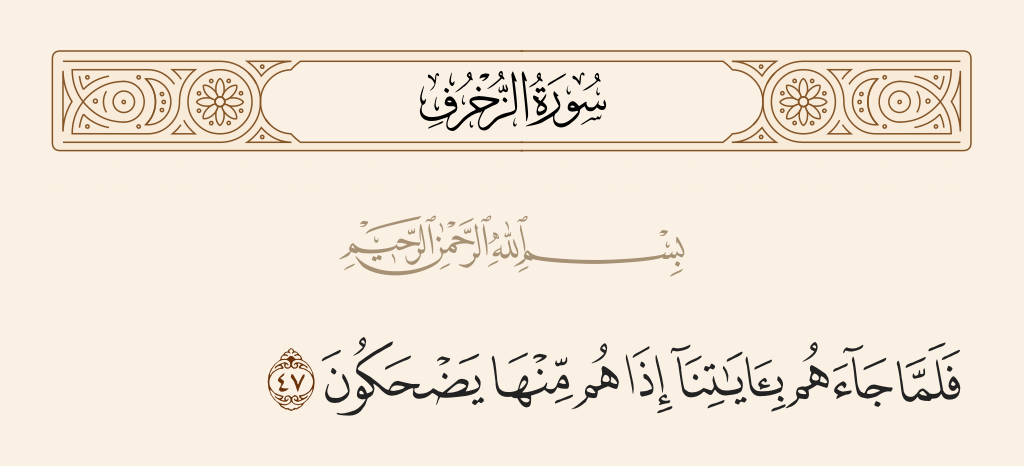 سُورَةُ الزُّخْرُفِ
بِسْمِ ٱللَّهِ ٱلرَّحْمَٰنِ ٱلرَّحِيمِ
فَلَمَّا جَآءَهُم بِـَٔايَـٰتِنَآ إِذَا هُم مِّنْهَا يَضْحَكُونَ ٤٧